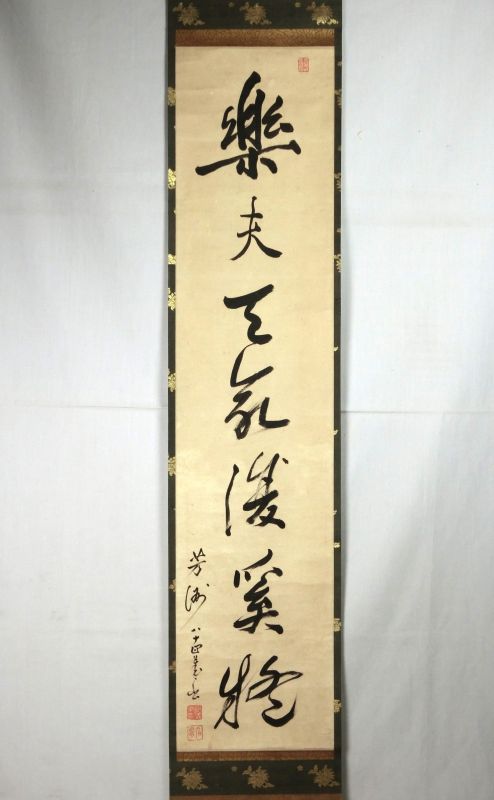 樂夫天命復奚疑
芳洲 八十四歳書